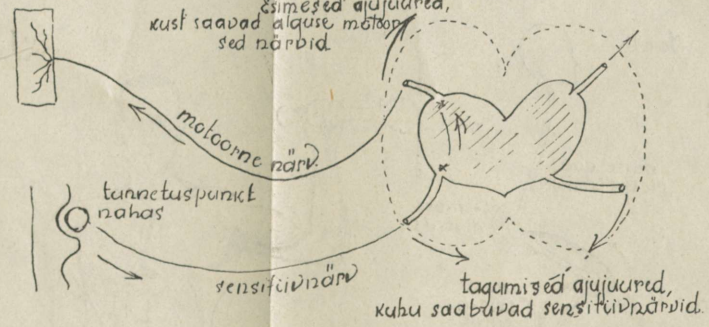 esimesed ajujuured,
kust saavad alguse motoor-
sed närvid.
motoorne närv.
tunnetuspunkt
nahas
sensitiivnärv
tagumised ajujuured,
kuhu saabuvad sensitiivnärvid.